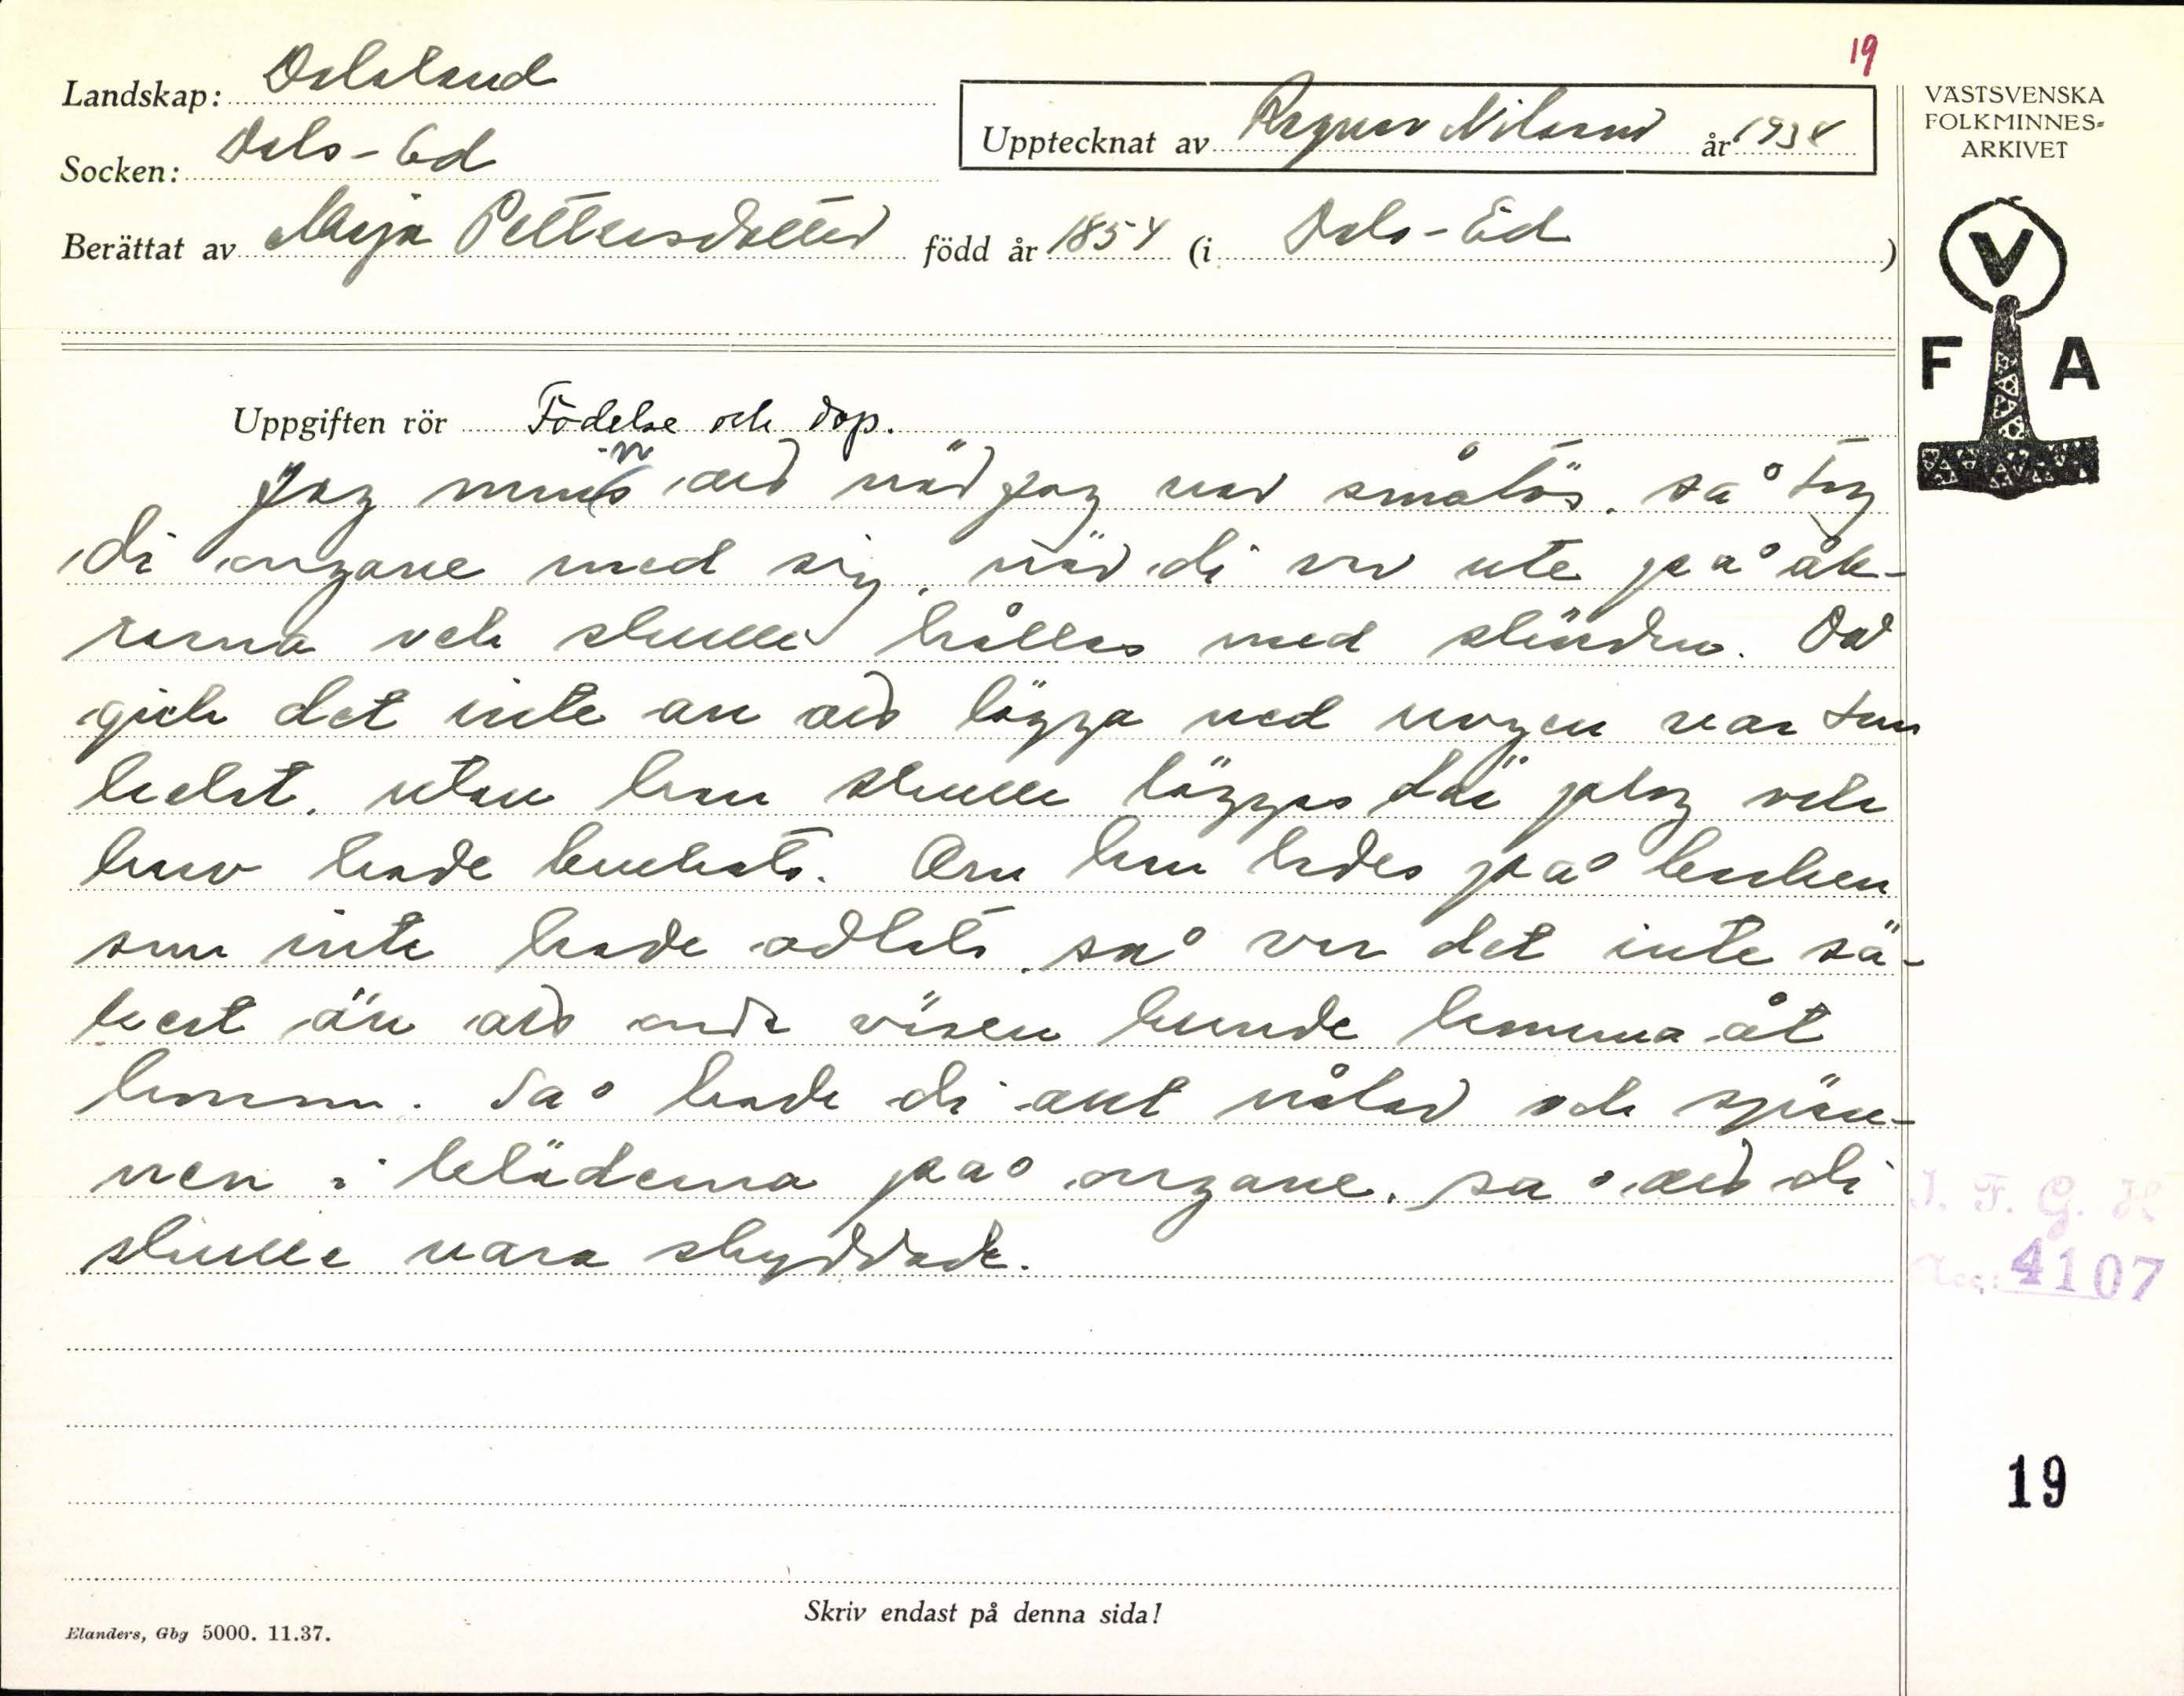 19
Landskap: Dalsland
Upptecknat av Ragnar Nilsson år 1938
Socken: Dals-Ed
Berättat av Maja Pettersdotter född år 1854 (i Dals-Ed)
VÄSTSVENSKA
FOLKMINNES=
ARKIVET
V
F A
Uppgiften rör Födelse och dop.
Jag minns att när jag var småtös, så tog
di ongane med sig, när di var ute på åk-
rarna och skulle hållas med skörden. Då
gick det inte an att lägga ned ungen var som
helst, utan han skulle läggas där plog och
harv hade brukats. Om han lades på backen
som inte hade odlats, så var det inte sä-
kert än att onda väsen kunde komma åt
honom. Så hade di ock nålar och spän-
nen i kläderna på ongane, så att di
skulle vara skyddade.
I. F. G. H
Acc: 4107
19
Skriv endast på denna sida!
Elanders, Gbg 5000. 11.37.